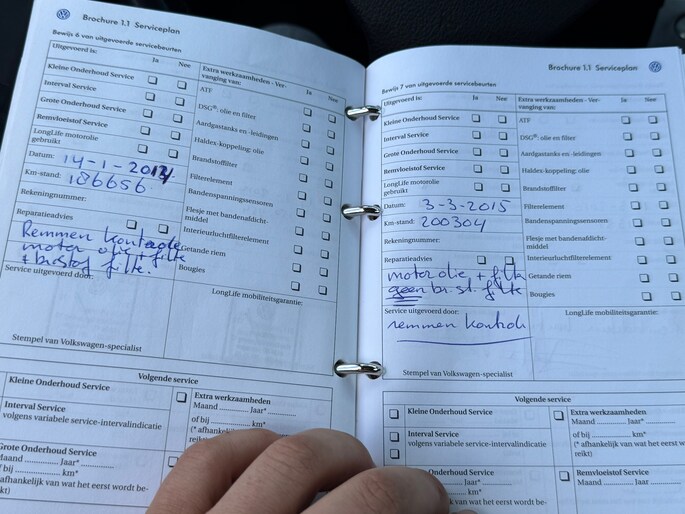 Brochure 1.1 Serviceplan
Bewijs 6 van uitgevoerde servicebeurten
Uitgevoerd is: Ja Nee
Extra werkzaamheden - Ver-
vanging van: Ja Nee
Kleine Onderhoud Service
ATF
Interval Service
DSG®: olie en filter
Grote Onderhoud Service
Aardgastanks en -leidingen
Remvloeistof Service
Haldex-koppeling; olie
LongLife motorolie
gebruikt
Brandstoffilter
Datum: 14-1-2014
Filterelement
Km-stand: 186656
Bandenspanningssensoren
Rekeningnummer:
Flesje met bandenafdicht-
middel
Reparatieadvies
Interieurluchtfilterelement
Remmen kontrole
Getande riem
motor olie + filte
Bougies
+ brstof filte.
Service uitgevoerd door:
LongLife mobiliteitsgarantie:
Stempel van Volkswagen-specialist
Volgende service
Kleine Onderhoud Service
Extra werkzaamheden
Maand ........ Jaar* ........
Interval Service
volgens variabele service-intervalindicatie
of bij ........ km*
(* afhankelijk
reikt)
Grote Onderhoud Service
Maand ........ Jaar* ........
of bij ........ km*
(* afhankelijk van wat het eerst wordt be-
reikt)
Brochure 1.1 Serviceplan
Bewijs 7 van uitgevoerde servicebeurten
Uitgevoerd is: Ja Nee
Extra werkzaamheden - Ver-
vanging van: Ja Nee
Kleine Onderhoud Service
ATF
Interval Service
DSG®: olie en filter
Grote Onderhoud Service
Aardgastanks en -leidingen
Remvloeistof Service
Haldex-koppeling; olie
LongLife motorolie
gebruikt
Brandstoffilter
Datum: 3-3-2015
Filterelement
Km-stand: 200304
Bandenspanningssensoren
Rekeningnummer:
Flesje met bandenafdicht-
middel
Reparatieadvies
Interieurluchtfilterelement
motor olie + filte
Getande riem
geen br. st. filte
Bougies
Service uitgevoerd door:
LongLife mobiliteitsgarantie:
remmen kontrole
Stempel van Volkswagen-specialist
Volgende service
Kleine Onderhoud Service
Extra werkzaamheden
Maand ........ Jaar* ........
Interval Service
volgens variabele service-intervalindicatie
of bij ........ km*
(* afhankelijk van wat het eerst w
reikt)
Onderhoud Service
Remvloeistof Service
Jaar*
Maand ........ Jaar
km*
van wat het eerst wordt be-